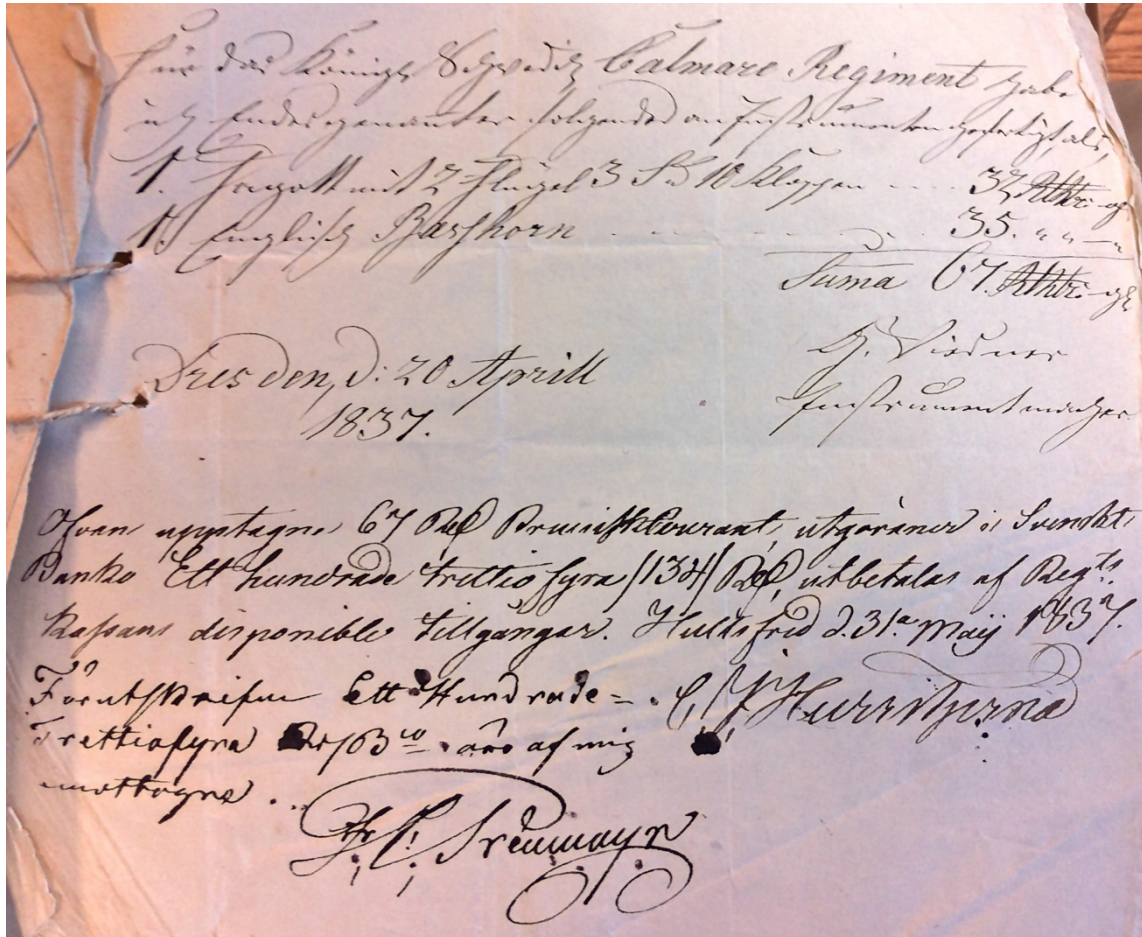 Für das Königl Schwedisch Calmare Regiment habe
ich Endesgenanter folgendes an Instrumenten gefertigt, als,
1. Fagott mit 2 Flügel 3 S 10 Klappen .... 32 Rthr - g
1. Englisch Basshorn .... 35. " " — "
Suma 67. Rthr. - g
Dresden, d: 20 Aprill
1837.
Wiesner
Instrumentmacher
Ofvan upptagne 67 Rd Preussisk Courant, utgörande i Svenskt
Banko Ett hundrade trettio fyra /134/ Rd, utbetalas af Regts
Kassans disponible tillgångar. Hultsfred d. 31a Maij 1837.
Förutskrifne Ett Hundrade =
Trettiofyra Rd B co äro af mig
mottagne ..